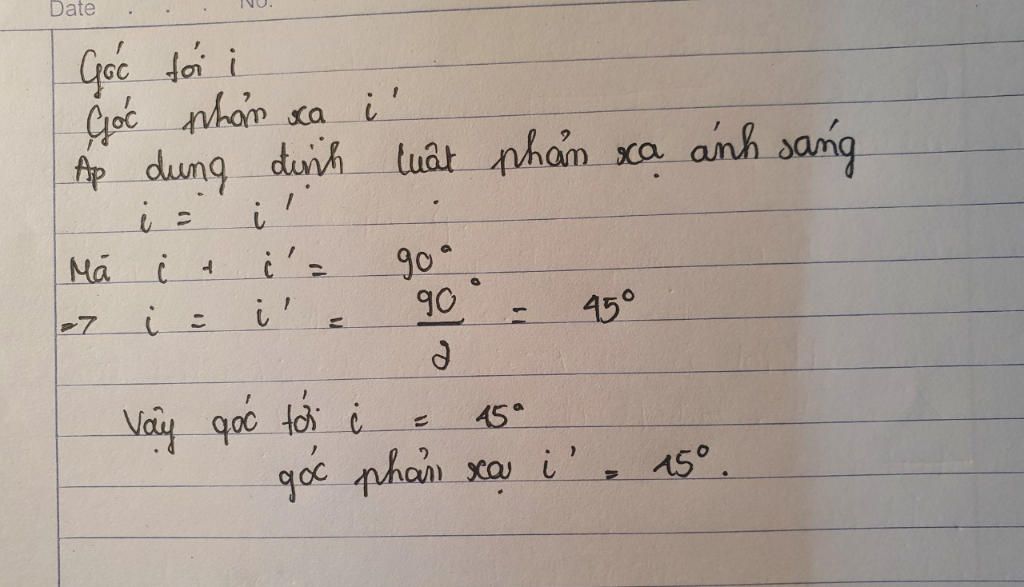 Date . . . No.
Góc tới i
Góc phản xạ i'
Áp dụng định luật phản xạ ánh sáng
i = i'
Mà i + i' = 90°
=> i = i' = 90°/2 = 45°
Vậy góc tới i = 45°
góc phản xạ i' = 45°.